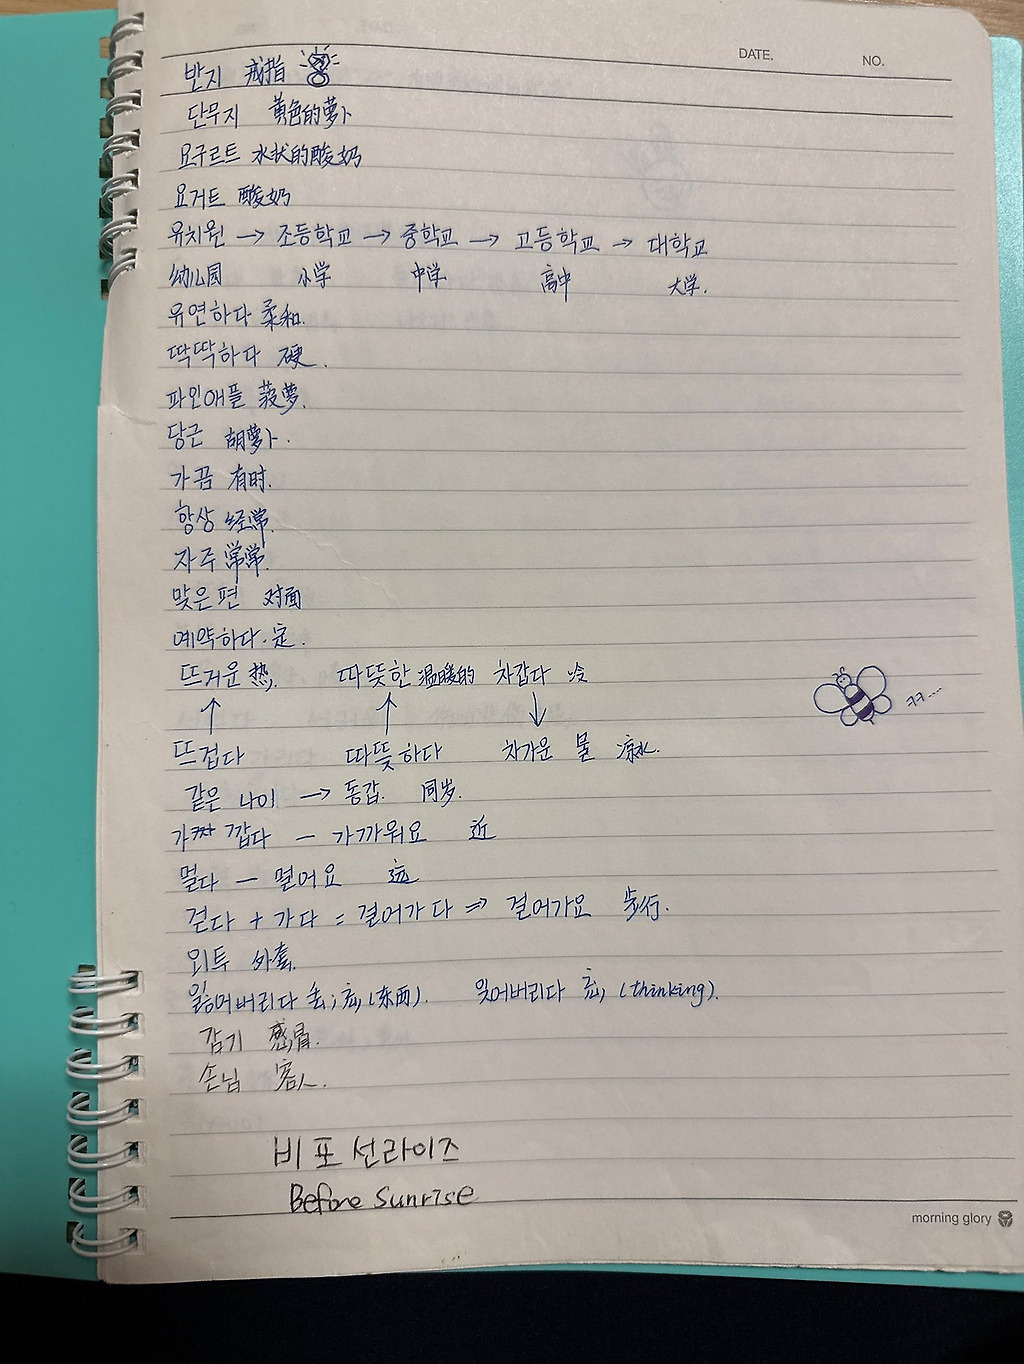 DATE. NO.
반지 戒指
단무지 黄色的萝卜
요구르트 水状的酸奶
요거트 酸奶
유치원 → 초등학교 → 중학교 → 고등학교 → 대학교
幼儿园 小学 中学 高中 大学.
유연하다 柔和.
딱딱하다 硬.
파인애플 菠萝.
당근 胡萝卜.
가끔 有时.
항상 经常.
자주 常常.
맞은편 对面
예약하다. 定.
뜨거운 热, 따뜻한 温暖的 차갑다 冷
ㅋㅋ...
뜨겁다 따뜻하다 차가운 물 凉水.
같은 나이 → 동갑. 同岁.
가깝다 — 가까워요 近
멀다 — 멀어요 远
걷다 + 가다 = 걸어가다 ⇒ 걸어가요 步行.
외투 外套.
잃어버리다 丢; 忘, (东西). 잊어버리다 忘, (thinking).
감기 感冒.
손님 客人.
비포 선라이즈
Before Sunrise
morning glory